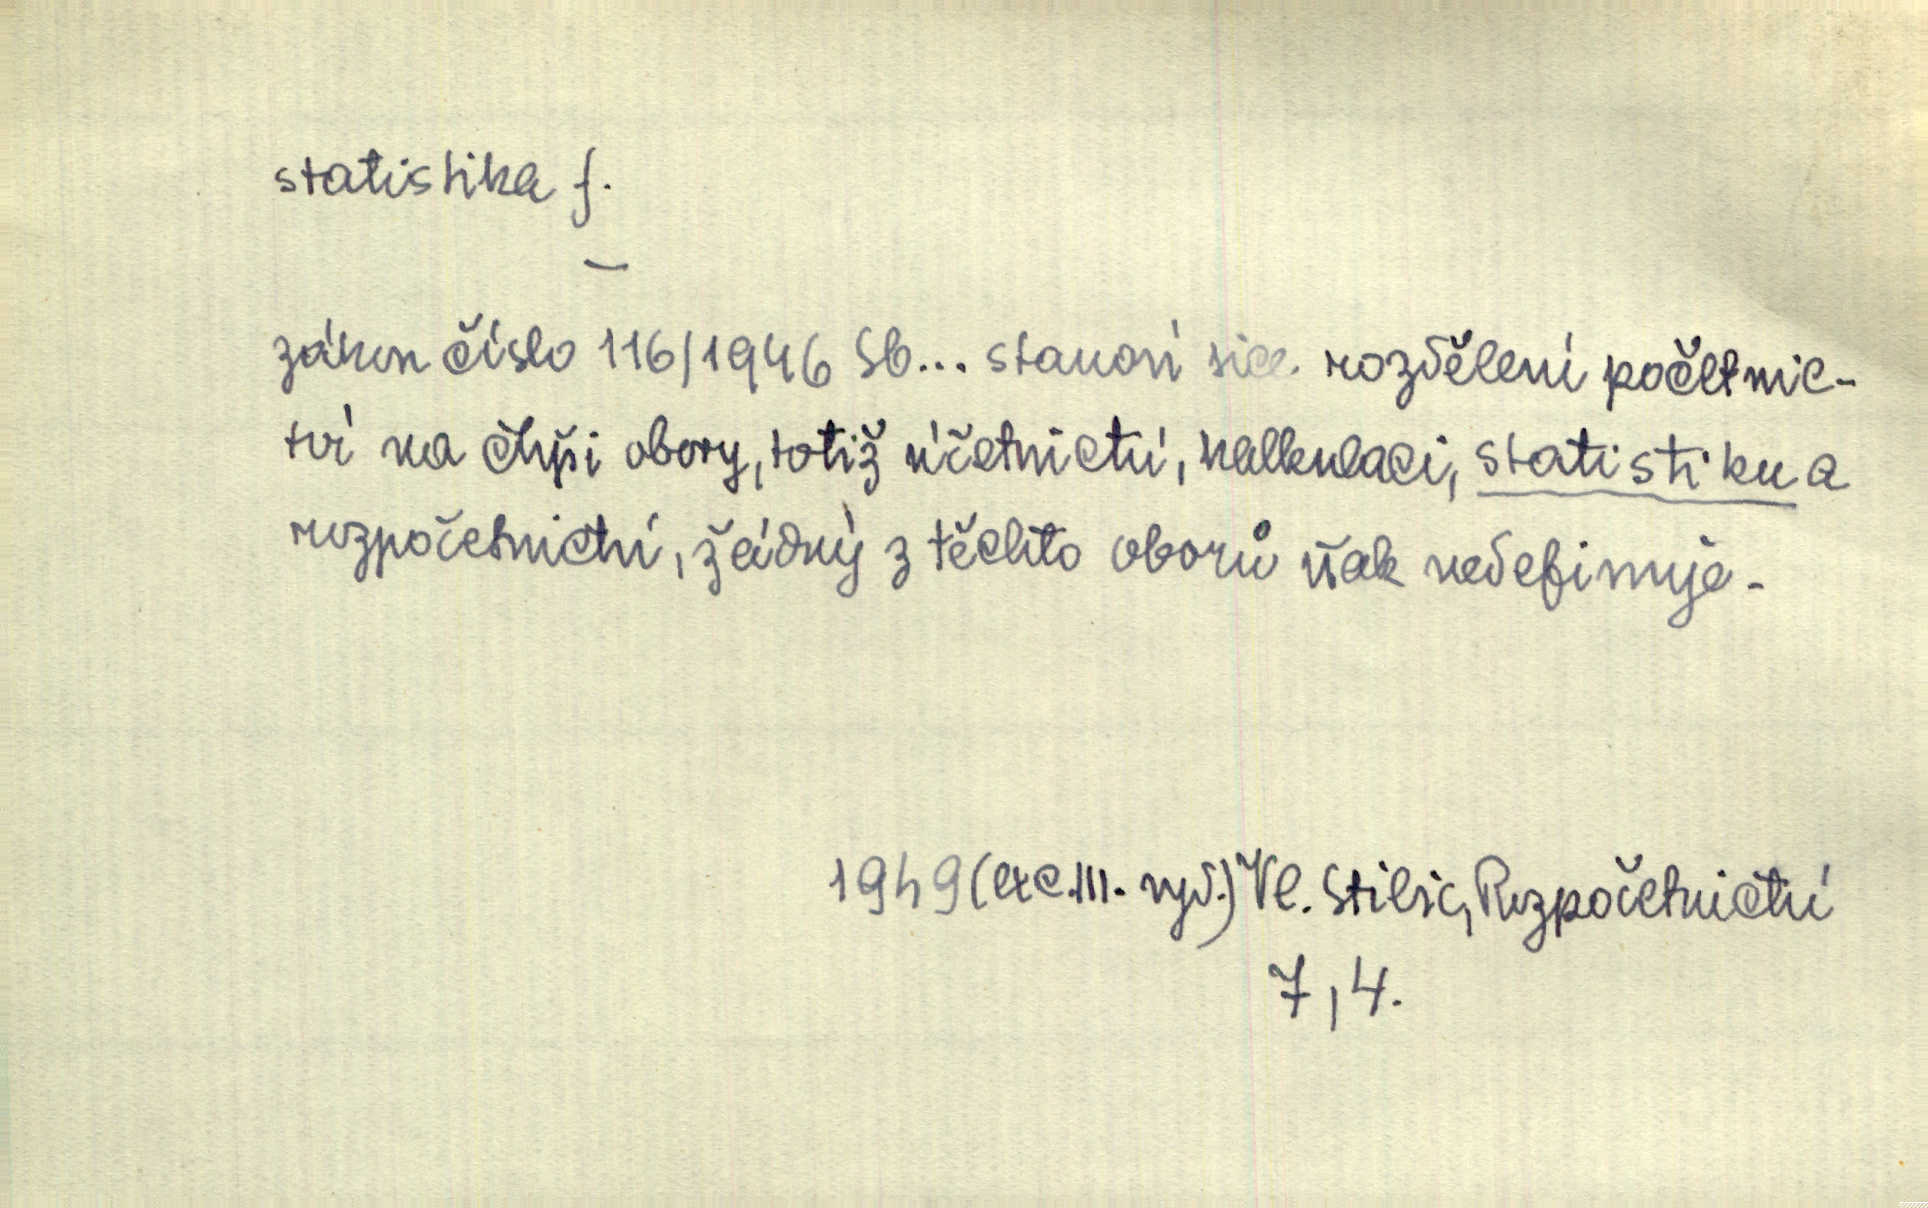 statistika f.
–
zákon číslo 116/1946 Sb... stanoví sice rozdělení početnic-
tví na čtyři obory, totiž účetnictví, kalkulaci, statistiku a
rozpočetnictví, žádný z těchto oborů však nedefinuje.
1949 (exc. III. vyd.) Vl. Rozpočetnictví
7, 4.